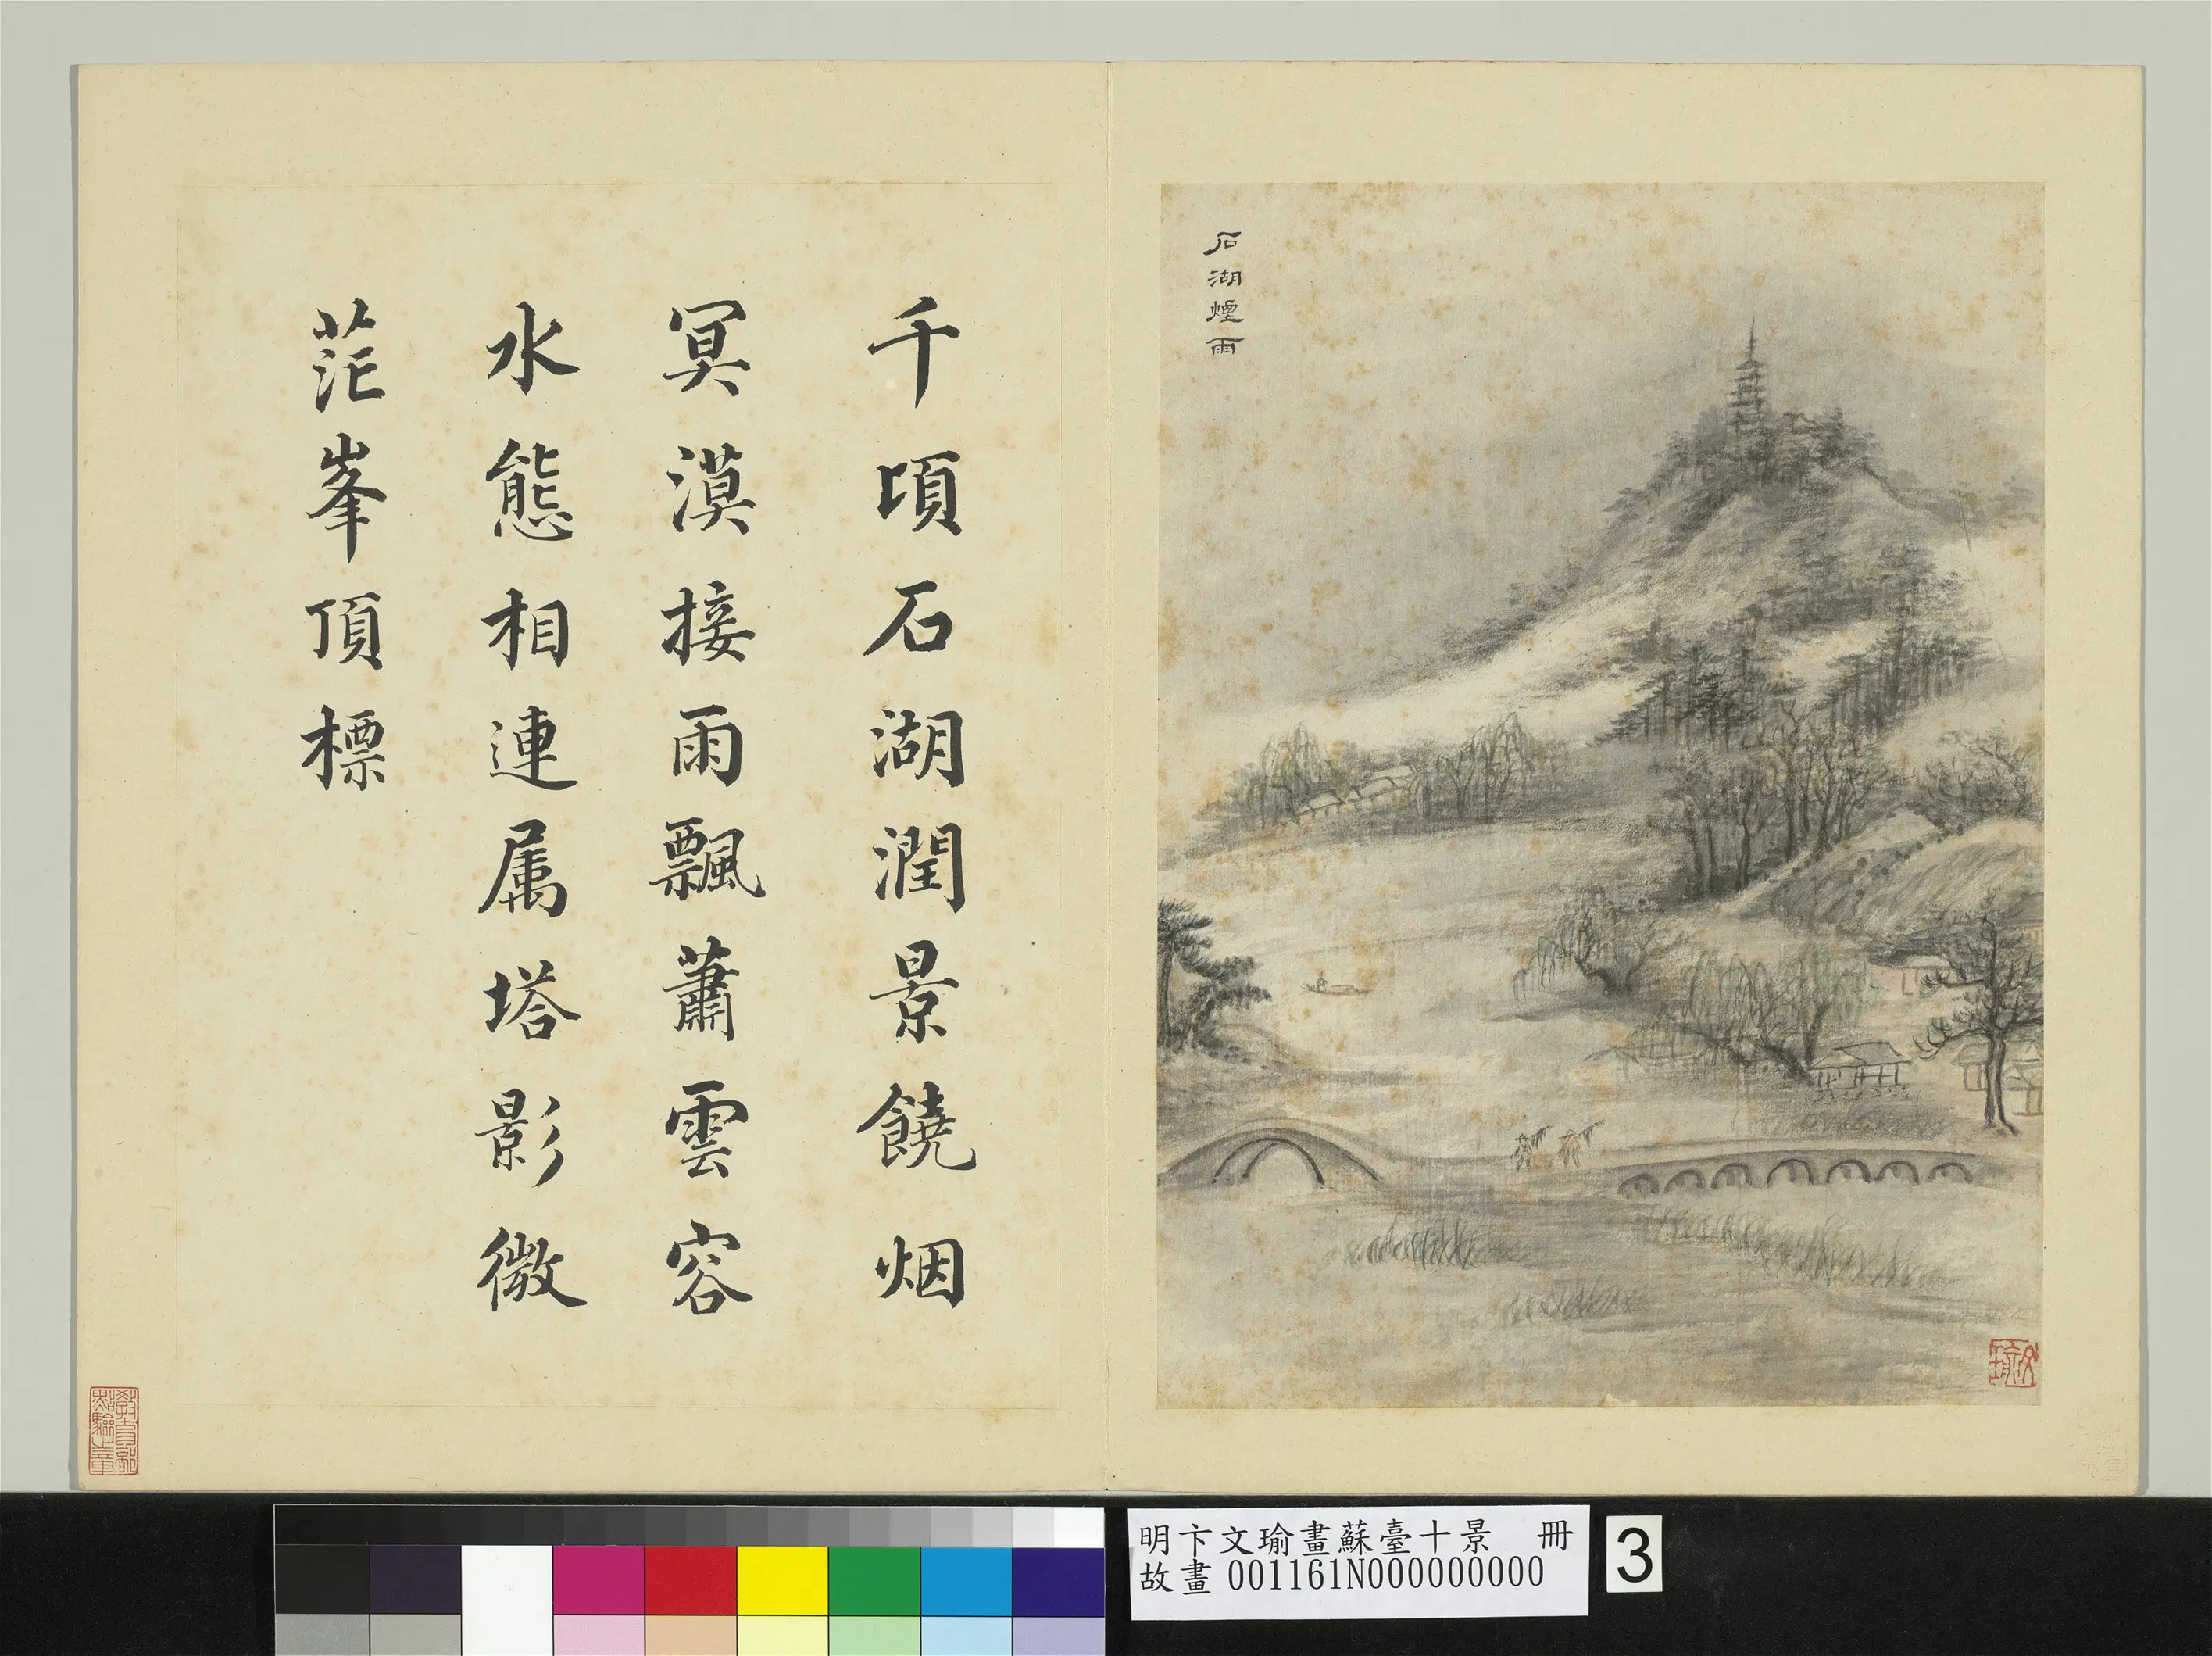 石湖煙雨
千頃石湖潤景饒烟
冥漠接雨飄蕭雲容
水態相連属塔影微
茫峯頂標
教育部
點驗之章
明卞文瑜畫蘇臺十景 冊
故畫001161N000000000
3